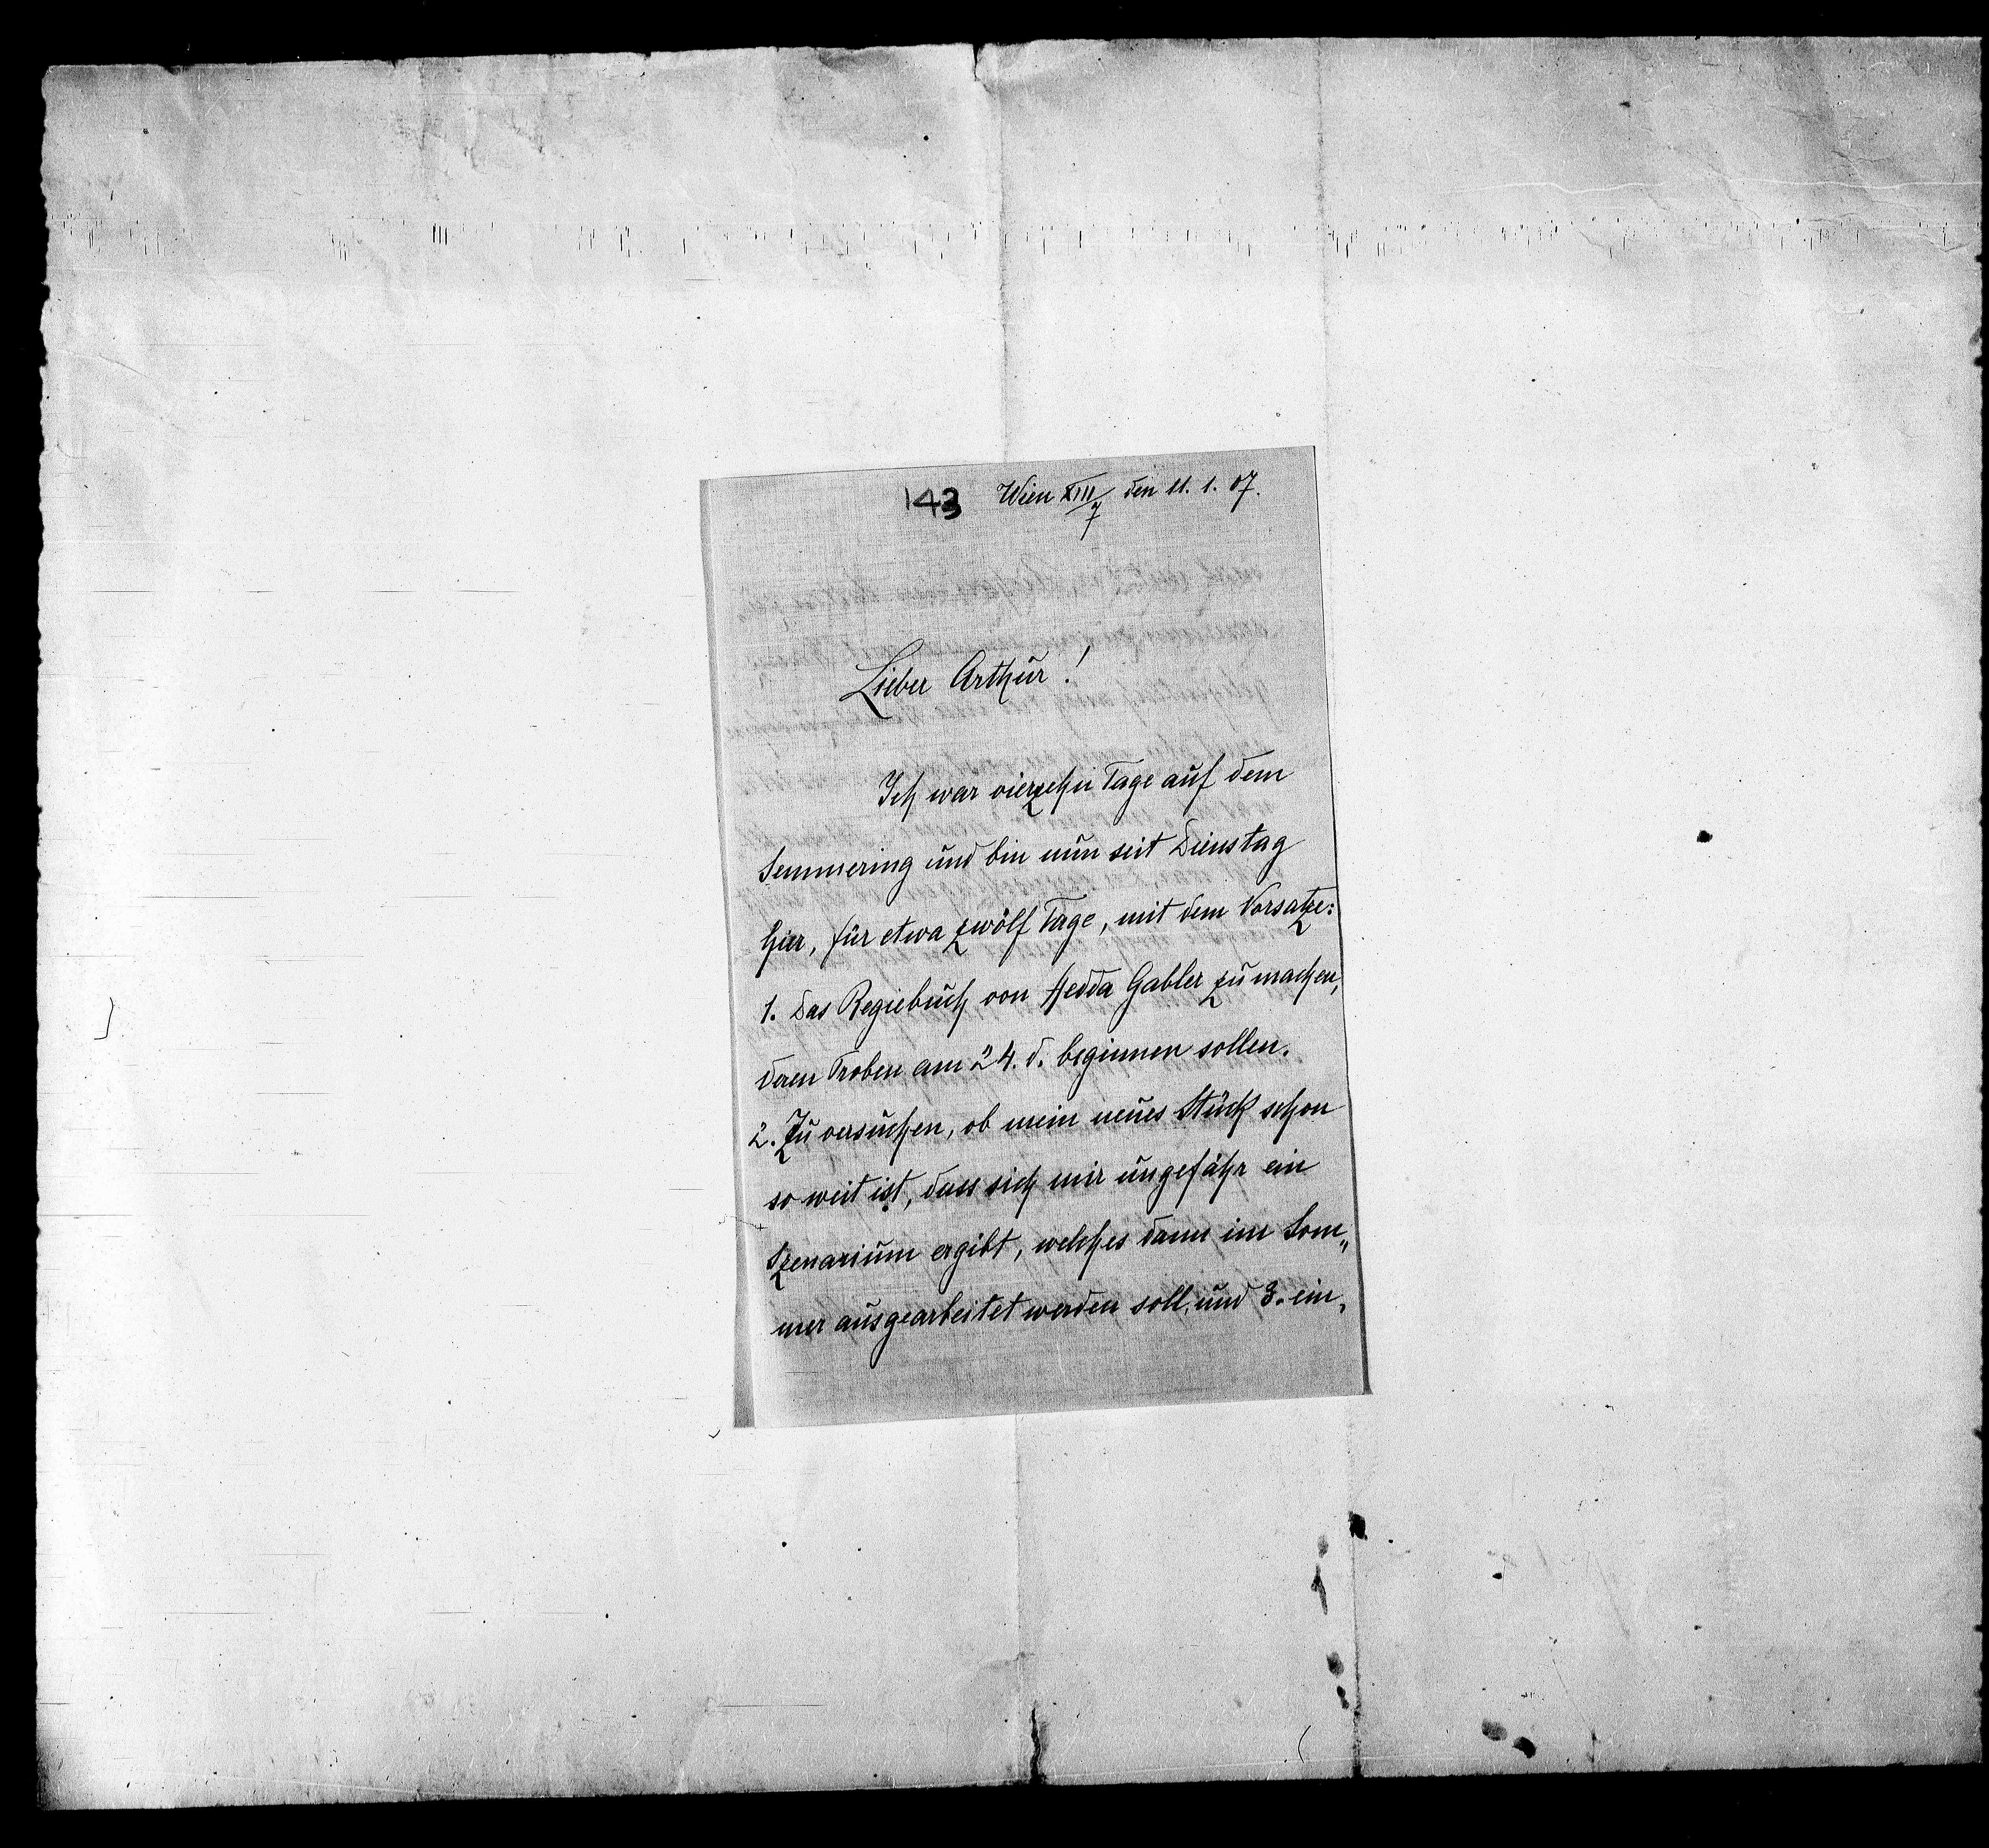 143 Wien XIII/7 den 11. 1. 07.
Lieber Arthur!
Ich war vierzehn Tage auf dem
Semmering und bin nun seit Dienstag
hier, für etwa zwölf Tage, mit dem Vorsatze:
1. Das Regiebuch von Hedda Gabler zu machen,
deren Proben am 24. d. beginnen sollen.
2. Zu versuchen, ob mein neues Stück schon
so weit ist, dass sich mir ungefähr ein
Szenarium ergibt, welches dann im Som„
mer ausgearbeitet werden soll, und 3. ein„